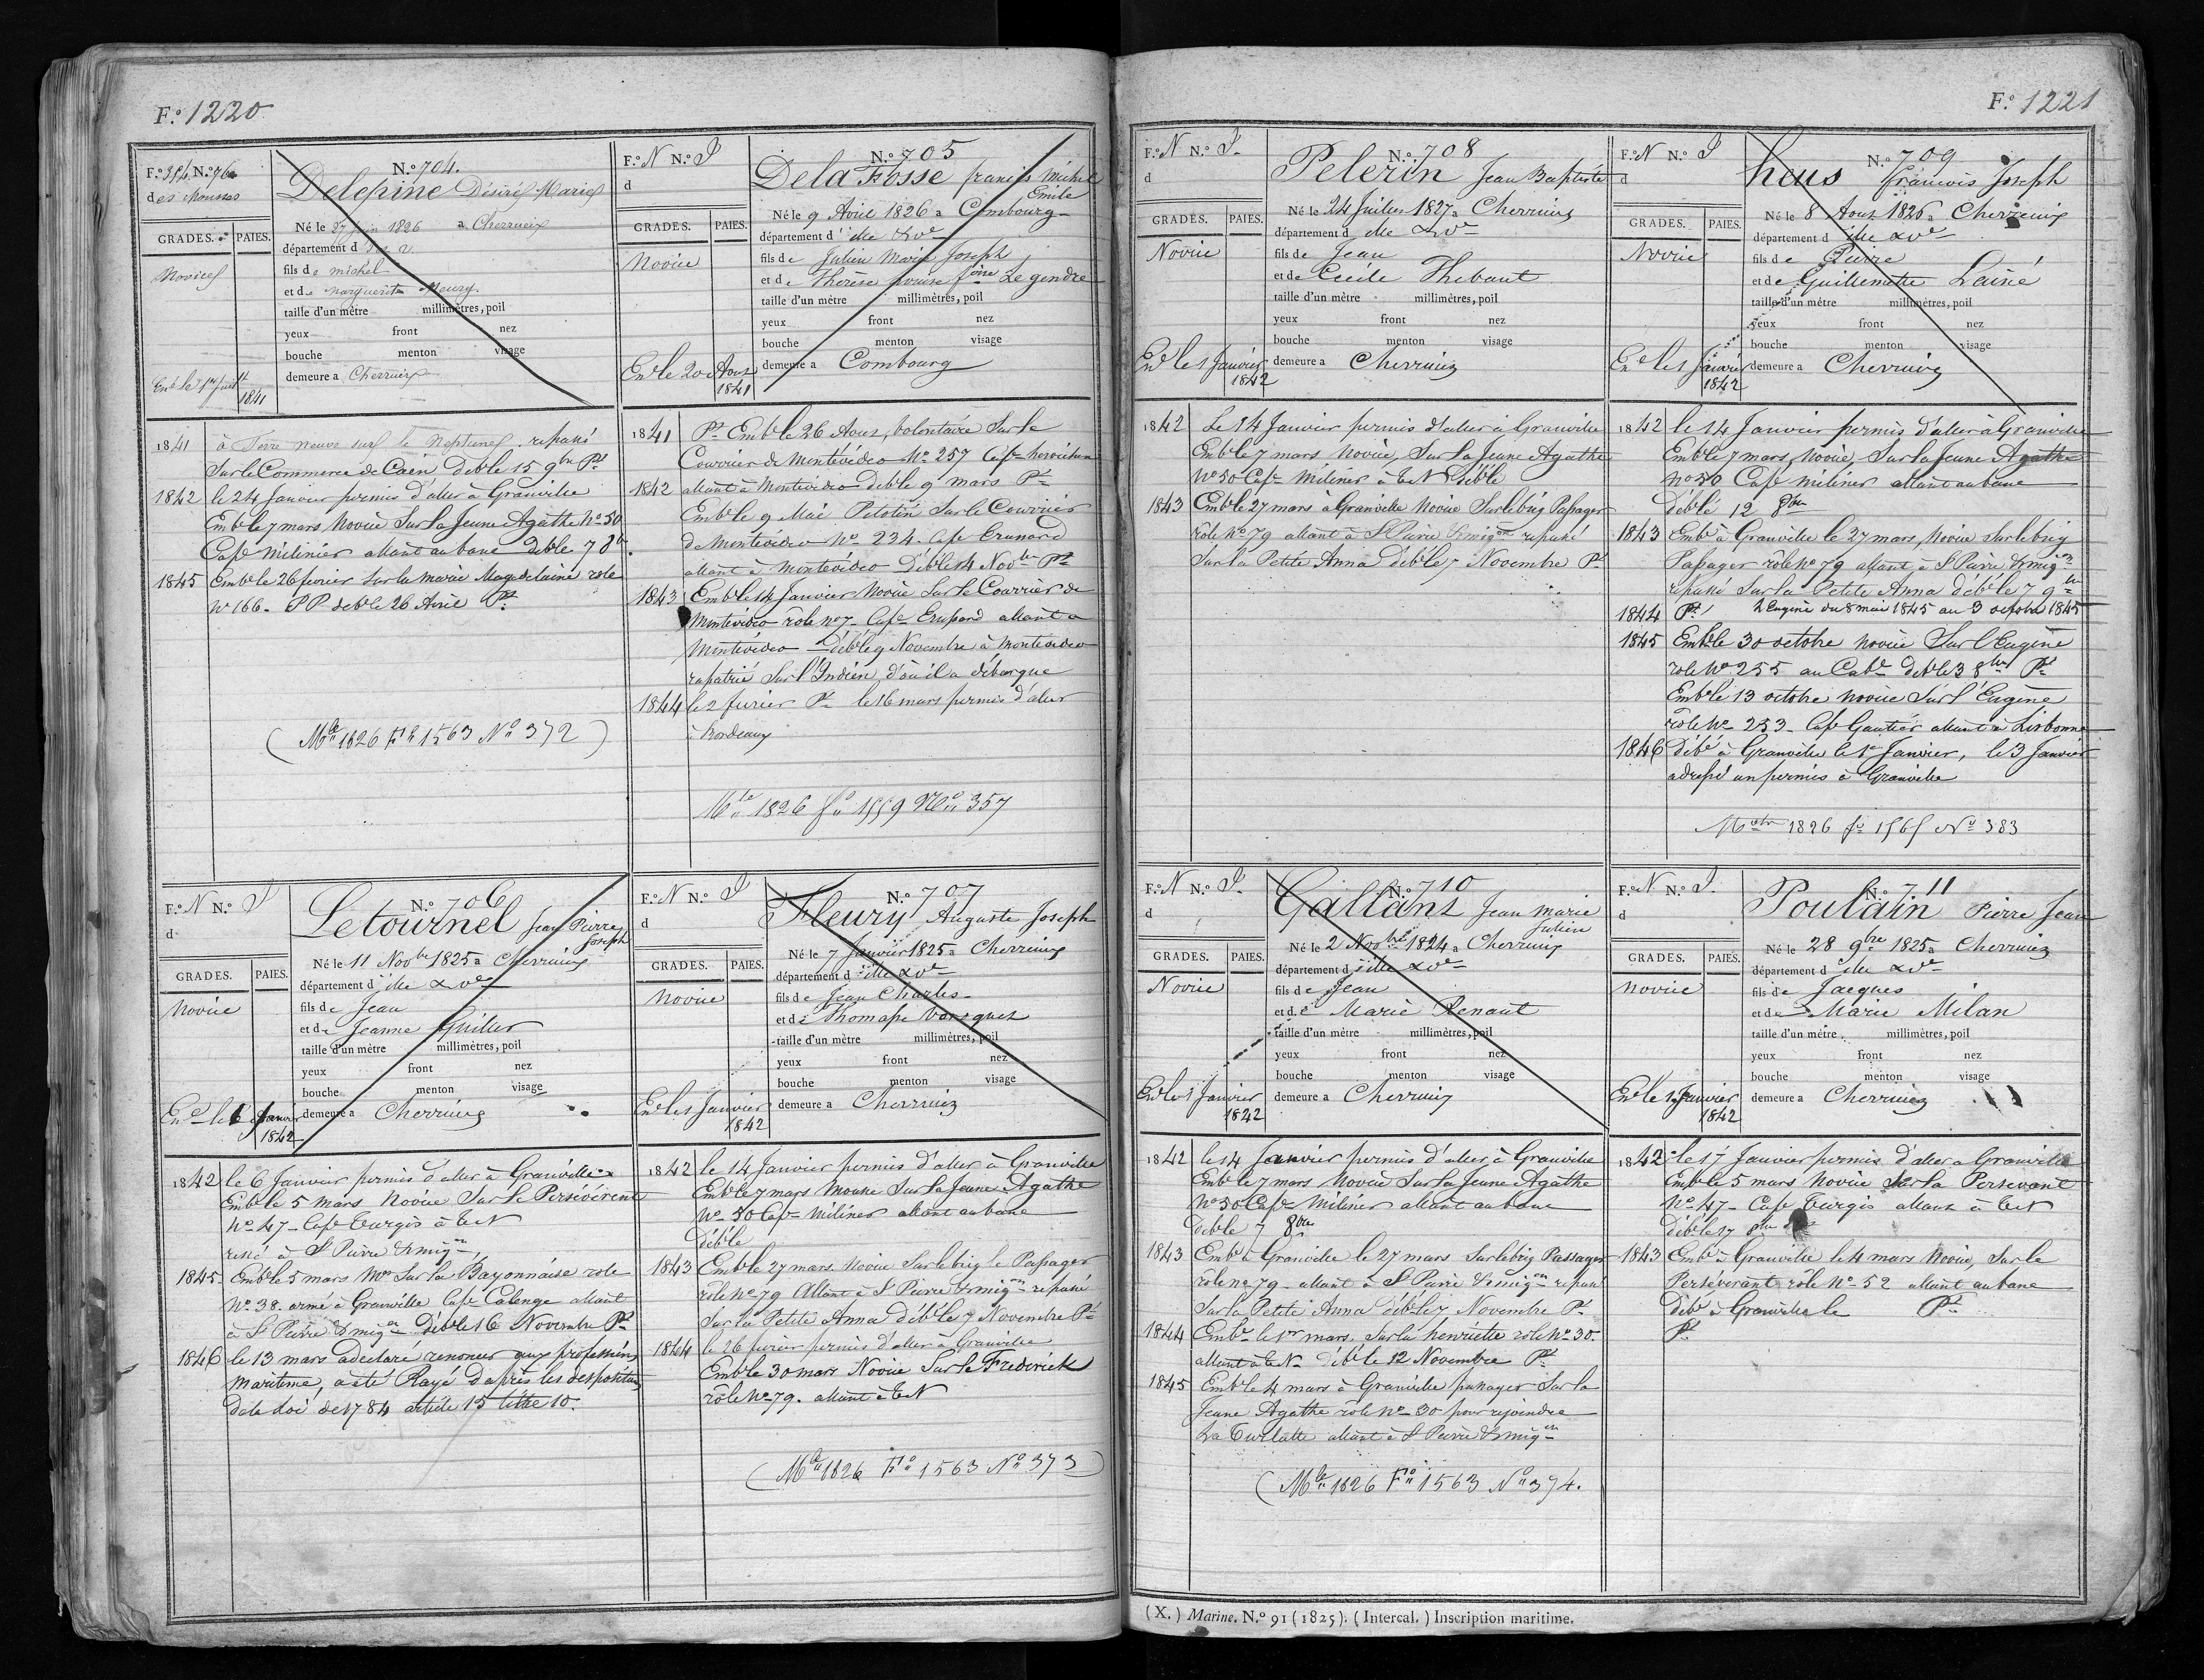 F.º 1220
F.º 314 N.º 76
des Mousses
GRADES. PAIES.
Novice
Enr.é le 1er Juill.t
1841
N.º 704.
Delépine Désiré Marie
Né le 27 Juin 1826 a Cherrueix
département d
fils de Michel
et de Marguerite Fleury
taille d'un mètre millimètres, poil
yeux front nez
bouche menton visage
demeure a Cherrueix
1841 à Terre neuve sur le Neptune, repassé
Sur le Commerce de Caen Deb.le 15 9bre P.t
1842 le 24 Janvier permis d'aller à Granville
Emb.le 7 mars Novice Sur la Jeune Agathe N.º 50
Cap.e Milinier allant au banc deb.le 7 8bre
1845 Emb.le 26 fevrier Sur la Marie Magdelaine role
N.º 166. P.P. deb.le 26 Avril P.t
(M.le 1826 F.º 1563 N.º 372)
F.º N N.º P
d
GRADES. PAIES.
Novice
En.le 20 Aout
1841
N.º 705
Dela Fosse francis Michel
Emile
Né le 9 Avril 1826 a Combourg
département d'ille & V.e
fils de Julien Marie Joseph
et de Thérèse Louise f.oise Le gendre
taille d'un mètre millimètres, poil
yeux front nez
bouche menton visage
demeure a Combourg
1841 P.t Emb.le 26 Aout, volontaire Sur le
Courrier de Montévidéo N.º 257 Cap.e
1842 allant à Montévidéo deb.le 9 mars P.t
Emb.le 9 Mai Pilotin Sur le Courrier
de Montévidéo N.º 234. Cap.e
allant à Montévidéo Déb.le 14 Nov.bre P.t
1843 Emb.le 14 Janvier Novice Sur le Courrier de
Montévidéo rôle n.º 7 Cap.e allant a
Montévidéo Déb.le 9 Novembre à Montevideo
rapatrié Sur l'Indien, d'où il a débarqué
1844 le 2 fevrier P.t le 16 mars permis d'aller
à Bordeaux
M.le 1826 f.º 1559 N.º 357
F.º N N.º P
d
GRADES. PAIES.
Novice
En.é le 6 Janvier
1842
N.º 706
Letournel Jean Pierre
Joseph
Né le 11 Nov.bre 1825 a Cherrueix
département d'ille & V.e
fils de Jean
et de Jeanne Guiller
taille d'un mètre millimètres, poil
yeux front nez
bouche menton visage
demeure a Cherrueix
1842 le 6 Janvier permis d'aller à Granville
Emb.le 5 mars Novice Sur le Persévérent
N.º 47 Cap.e Turgis à T.N
resté à S.t Pierre & miq.on
1845 Emb.le 5 mars M.ot Sur la Bayonnaise role
N.º 38. armé à Granville Cap.e Calenge allant
à S.t Pierre & miq.on Deb.le 16 Novembre P.t
1846 le 13 mars a declaré renoncer aux professions
maritime, a été Rayé D'après les dispositions
de la Loi de 1784 article 15 titre 10.
F.º N N.º P
d
GRADES. PAIES.
Novice
En.le 1 Janvier
1842
N.º 707
Fleury Auguste Joseph
Né le 7 Janvier 1825 a Cherrueix
département d'ille & V.e
fils de Jean Charles
et de Thomasse
taille d'un mètre millimètres, poil
yeux front nez
bouche menton visage
demeure a Cherrueix
1842 le 14 Janvier permis d'aller à Granville
Emb.le 7 mars Mousse Sur la Jeune Agathe
N.º 50 Cap.e Milinier allant au banc
Déb.le
1843 Emb.le 27 mars Novice Sur le brig le Passager
rôle N.º 79 Allant à S.t Pierre & miq.on repassé
Sur la Petite Anna Déb.le 7 Novembre P.t
1844 le 26 fevrier permis d'aller à Granville
Emb.le 30 mars Novice Sur le Frederick
rôle N.º 79. allant à T.N
(M.le 1826 F.º 1563 N.º 373)
F.º 1221
F.º N N.º P.
d
GRADES. PAIES.
Novice
En.le 1 Janvier
1842
N.º 708
Pelerin Jean Baptiste
Né le 24 Juillet 1827 a Cherrueix
département d'ille & V.e
fils de Jean
et de Cecile Thebaut
taille d'un mètre millimètres, poil
yeux front nez
bouche menton visage
demeure a Cherrueix
1842 Le 14 Janvier permis d'aller à Granville
Emb.le 7 mars Novice, Sur la Jeune Agathe
N.º 50 Cap.e Milinier à T.N Déb.le
1843 Emb.le 27 mars à Granville Novice Sur le brig Passager
rôle N.º 79 allant à S.t Pierre & miq.on repassé
Sur la Petite Anna Déb.le 7 Novembre P.t
F.º N N.º P
d
GRADES. PAIES.
Novice
En.le 1 Janvier
1842
N.º 709
hous francois Joseph
Né le 8 Aout 1826 a Cherrueix
département d'ille & V.e
fils de Pierre
et de Guillemette Lainé
taille d'un mètre millimètres, poil
yeux front nez
bouche menton visage
demeure a Cherrueix
1842 le 14 Janvier permis d'aller à Granville
Emb.le 7 mars, Novice, Sur la Jeune Agathe
N.º 50 Cap.e Milinier allant au banc
Déb.le 12 8bre
1843 Emb.é à Granville le 27 mars, Novice Sur le brig
Passager rôle N.º 79 allant à S.t Pierre & miq.on
repassé Sur la Petite Anna déb.le 7 9bre
1844 P.t L'Eugène du 8 mai 1845 au 3 octobre 1845
1845 Emb.le 30 octobre novice Sur l'Eugène
role N.º 255 au Cab.e deb.le 3 8bre P.t
Emb.le 13 octobre novice Sur l'Eugène
rôle N.º 253 Cap.e Gautier allant à Lisbonne
1846 Déb.é à Granville le 1er Janvier, le 3 Janvier
adressé un permis à Granville
M.le 1826 f.º 1565 N.º 383
F.º N N.º P.
d
GRADES. PAIES.
Novice
En.le 1 Janvier
1842
N.º 710
Gallant Jean Marie
Julien
Né le 2 Nov.bre 1824 a Cherrueix
département d'ille & V.e
fils de Jean
et de Marie Renaut
taille d'un mètre millimètres, poil
yeux front nez
bouche menton visage
demeure a Cherrueix
1842 le 14 Janvier permis d'aller à Granville
Emb.le 7 mars Novice Sur la Jeune Agathe
N.º 50 Cap.e Milinier allant au banc
Déb.le 7 8bre
1843 Emb.é à Granville le 27 mars Sur le brig Passager
rôle N.º 79 allant à S.t Pierre & miq.on repassé
Sur la Petite Anna Déb.le 7 Novembre P.t
1844 Emb.é le 1er mars. Sur la henriette rôle N.º 30.
allant à T.N. Déb.le 12 Novembre P.t
1845 Emb.le 4 mars à Granville passager Sur la
Jeune Agathe rôle N.º 30 pour rejoindre
La allant à S.t Pierre & miq.on
(M.le 1826 F.º 1563 N.º 374.
F.º N N.º P.
d
GRADES. PAIES.
Novice
En.le 1 Janvier
1842
N.º 711
Poulain Pierre Jean
Né le 28 9bre 1825 a Cherrueix
département d'ille & V.e
fils de Jacques
et de Marie Milan
taille d'un mètre millimètres, poil
yeux front nez
bouche menton visage
demeure a Cherrueix
1842 le 17 Janvier permis d'aller a Granville
Emb.le 5 mars Novice Sur la Persevant
N.º 47 Cap.e Turgis allant à T.N
Déb.le 17 8bre
1843 Emb.é à Granville le 4 mars Novice, Sur le
Persévérant rôle N.º 52 allant au banc
Déb.é à Granville le P.t
P.t
(X.) Marine. N.º 91 (1825). (Intercal.) Inscription maritime.